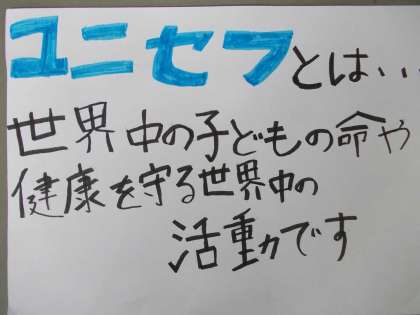 ユニセフとは...
世界中の子どもの命や
健康を守る世界中の
活動です